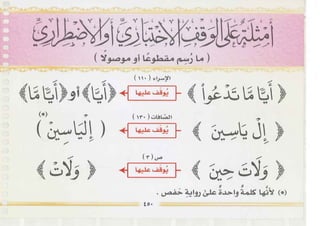 أمثلة على الوقف الاختباري أو الاضطراري
( ما رُسِم مقطوعًا أو موصولًا )
الإسراء ( ١١٠ )
﴿ أَيًّا مَا تَدْعُوا۟ ﴾ يُوقف عليها ﴿ أَيًّا ﴾ أو ﴿ أَيًّا مَّا ﴾
الصَّافات ( ١٣٠ )
﴿ إِلْ يَاسِينَ ﴾ يُوقف عليها ﴿ إِلْيَاسِينْ ﴾ (٥)
ص ( ٣ )
﴿ وَلَاتَ حِينَ ﴾ يُوقف عليها ﴿ وَلَاتْ ﴾
(٥) لأنها كلمةٌ واحدةٌ علىٰ روايةِ حفص .
٤٥٠